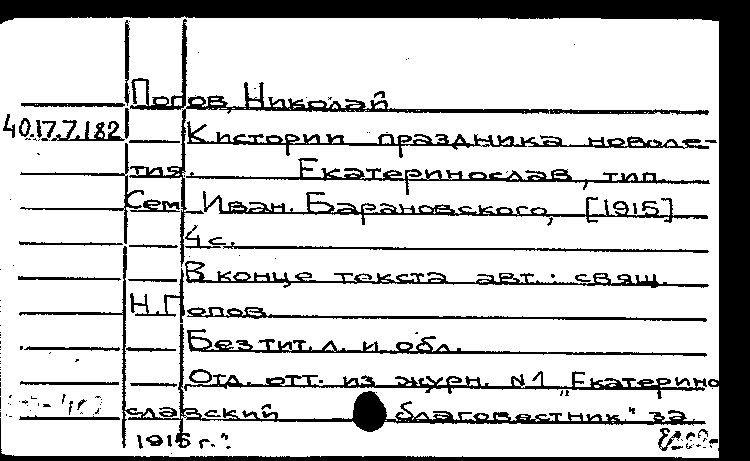 Попов, Николай
40.17.7.182 К истории праздника новоле-
тия. Екатеринослав, тип.
Сем. Иван. Барановского, [1915]
4 с.
В конце текста авт.: свящ.
Н. Попов.
Без тит. л. и обл.
Отд. отт. из журн. №1 „Екатерино
славский благовестник" за
1915 г.".